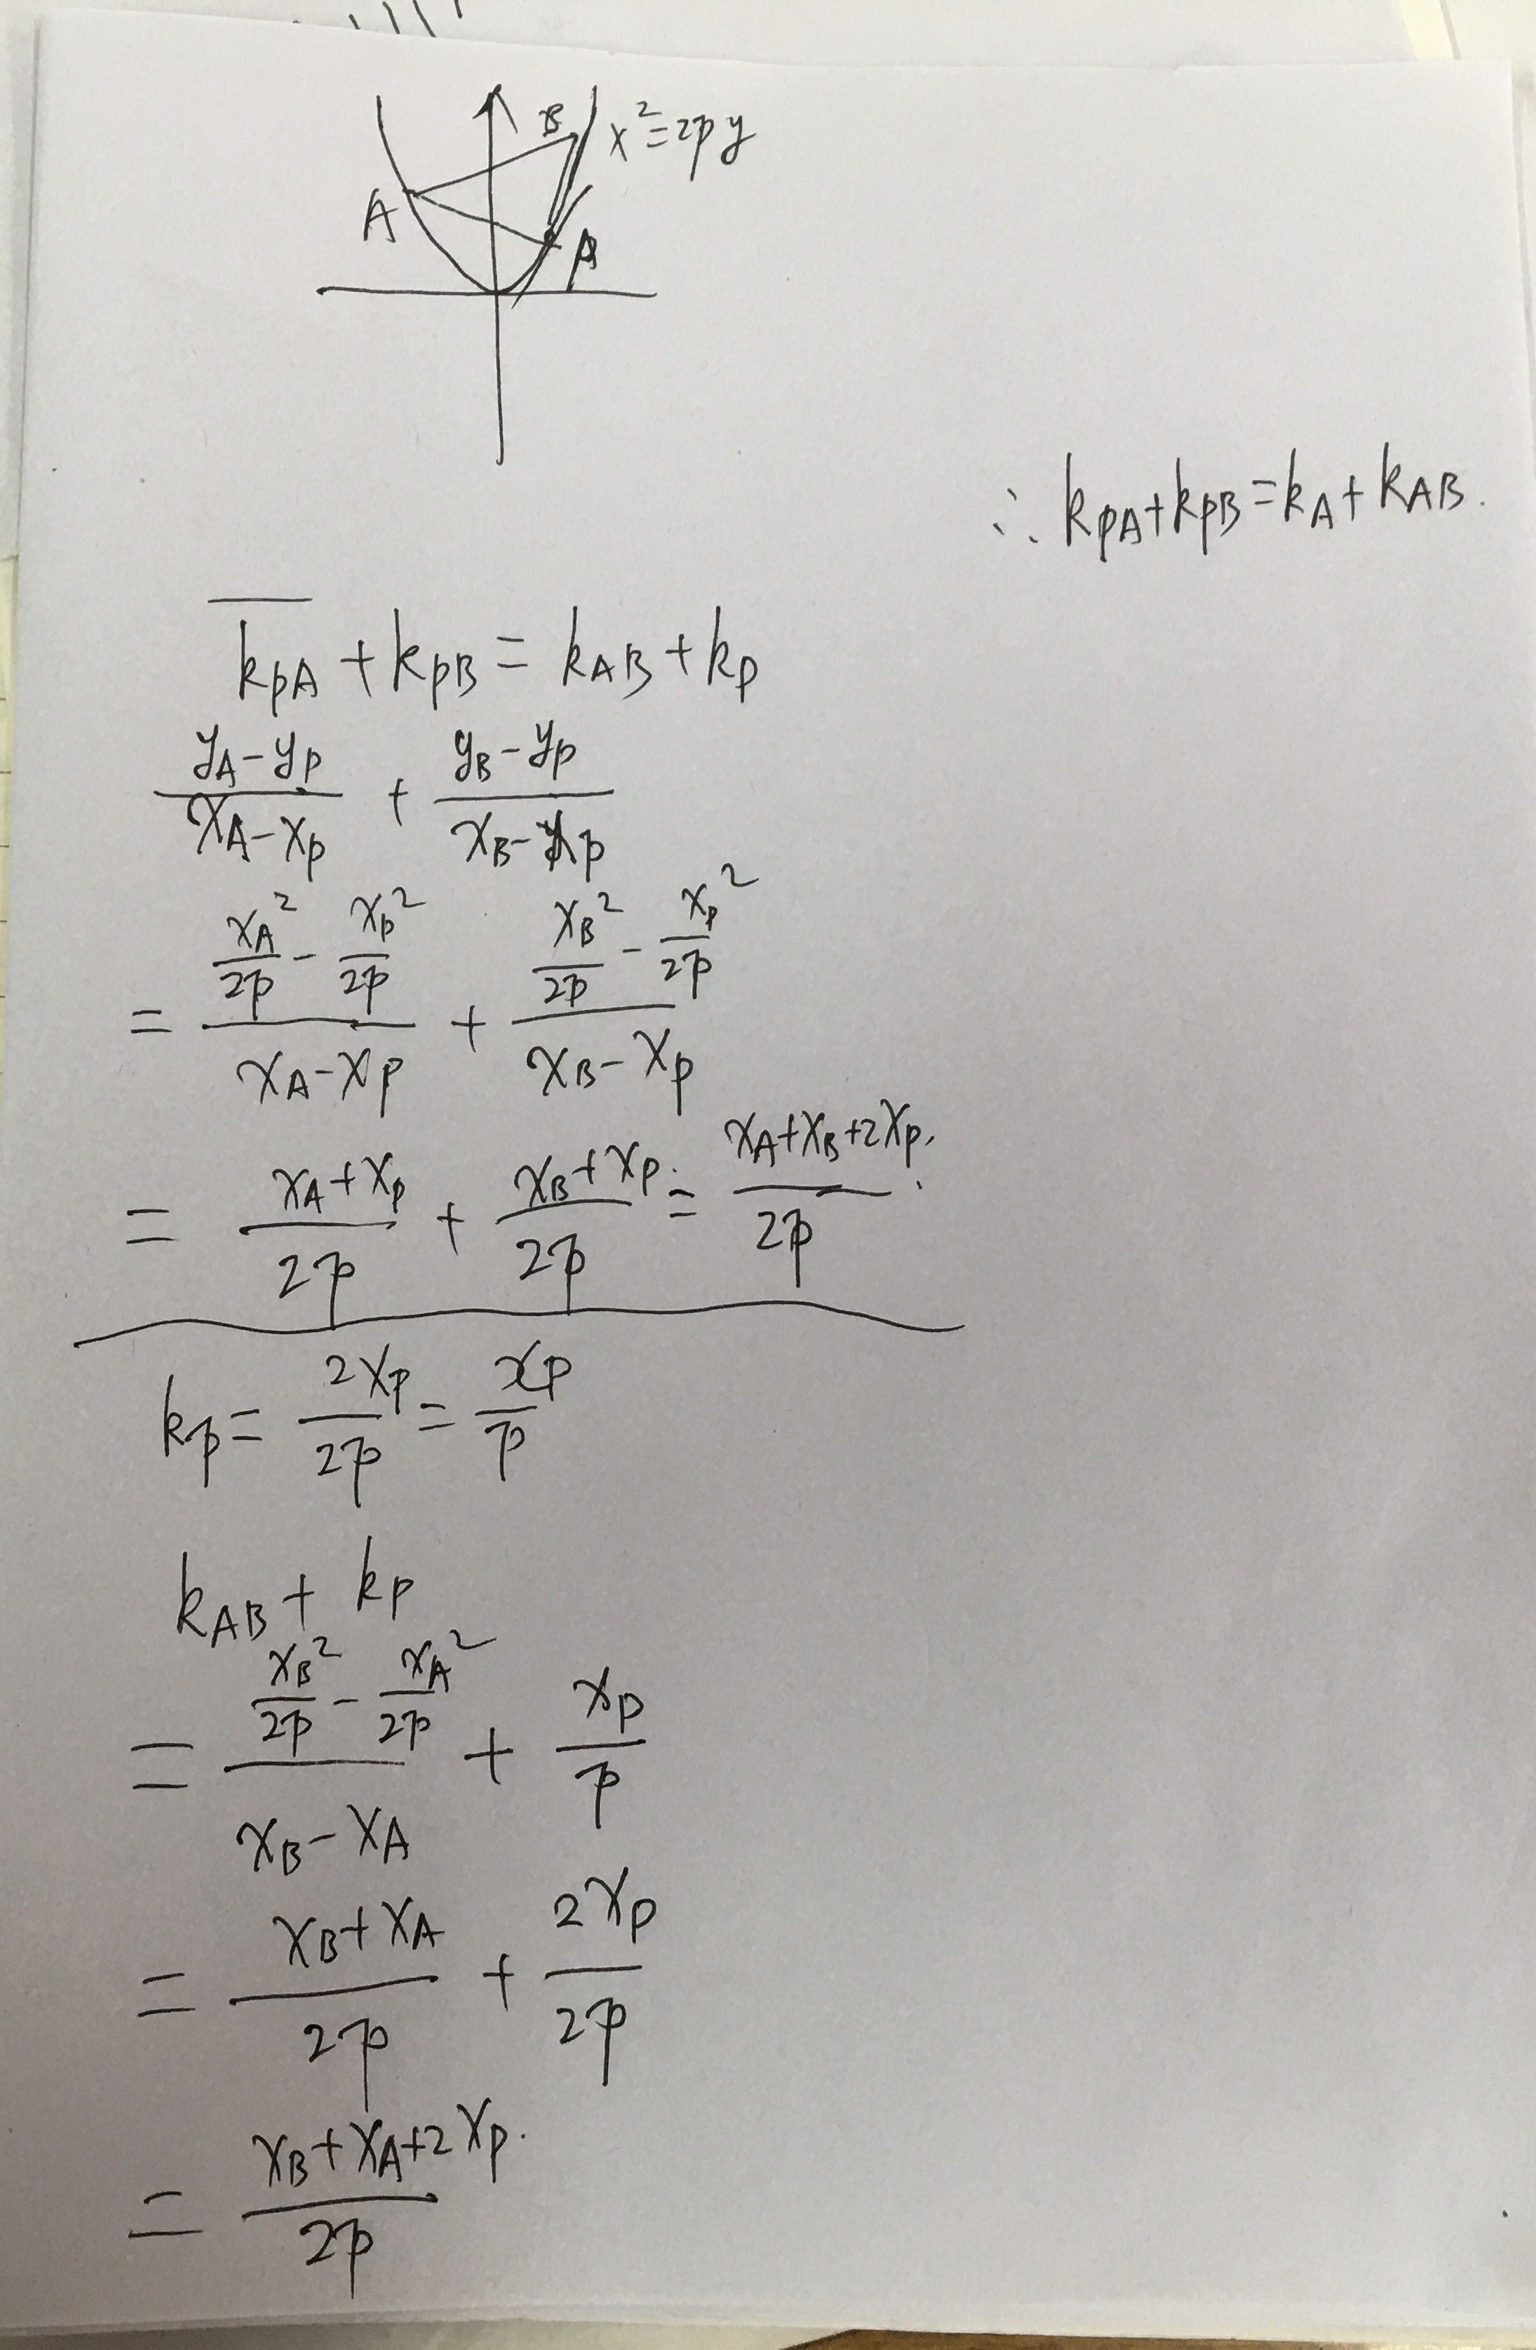 B x²=2py
A
P
∴ k_PA+k_PB=k_A+k_AB.
k_PA+k_PB=k_AB+k_P
(y_A-y_P)/(x_A-x_P) + (y_B-y_P)/(x_B-x_P)
= (x_A²/2p - x_P²/2p)/(x_A-x_P) + (x_B²/2p - x_P²/2p)/(x_B-x_P)
= (x_A+x_P)/2p + (x_B+x_P)/2p = (x_A+x_B+2x_P)/2p
k_P = 2x_P/2p = x_P/p
k_AB + k_P
= (x_B²/2p - x_A²/2p)/(x_B-x_A) + x_P/p
= (x_B+x_A)/2p + 2x_P/2p
= (x_B+x_A+2x_P)/2p